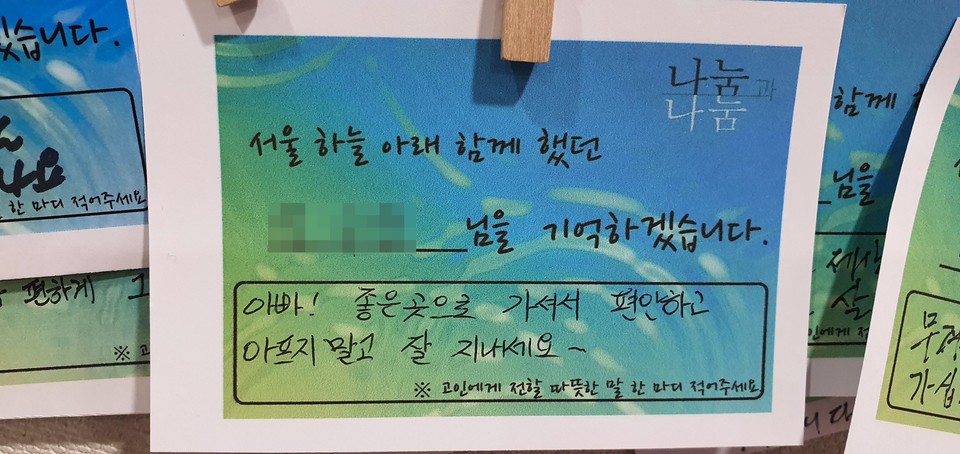 겠습니다.
나요
한 마디 적어주세요
편하게
나눔과
나눔
서울 하늘 아래 함께 했던
님을 기억하겠습니다.
아빠! 좋은곳으로 가셔서 편안하고
아프지 말고 잘 지내세요~
※ 고인에게 전할 따뜻한 말 한 마디 적어주세요
함께
님을